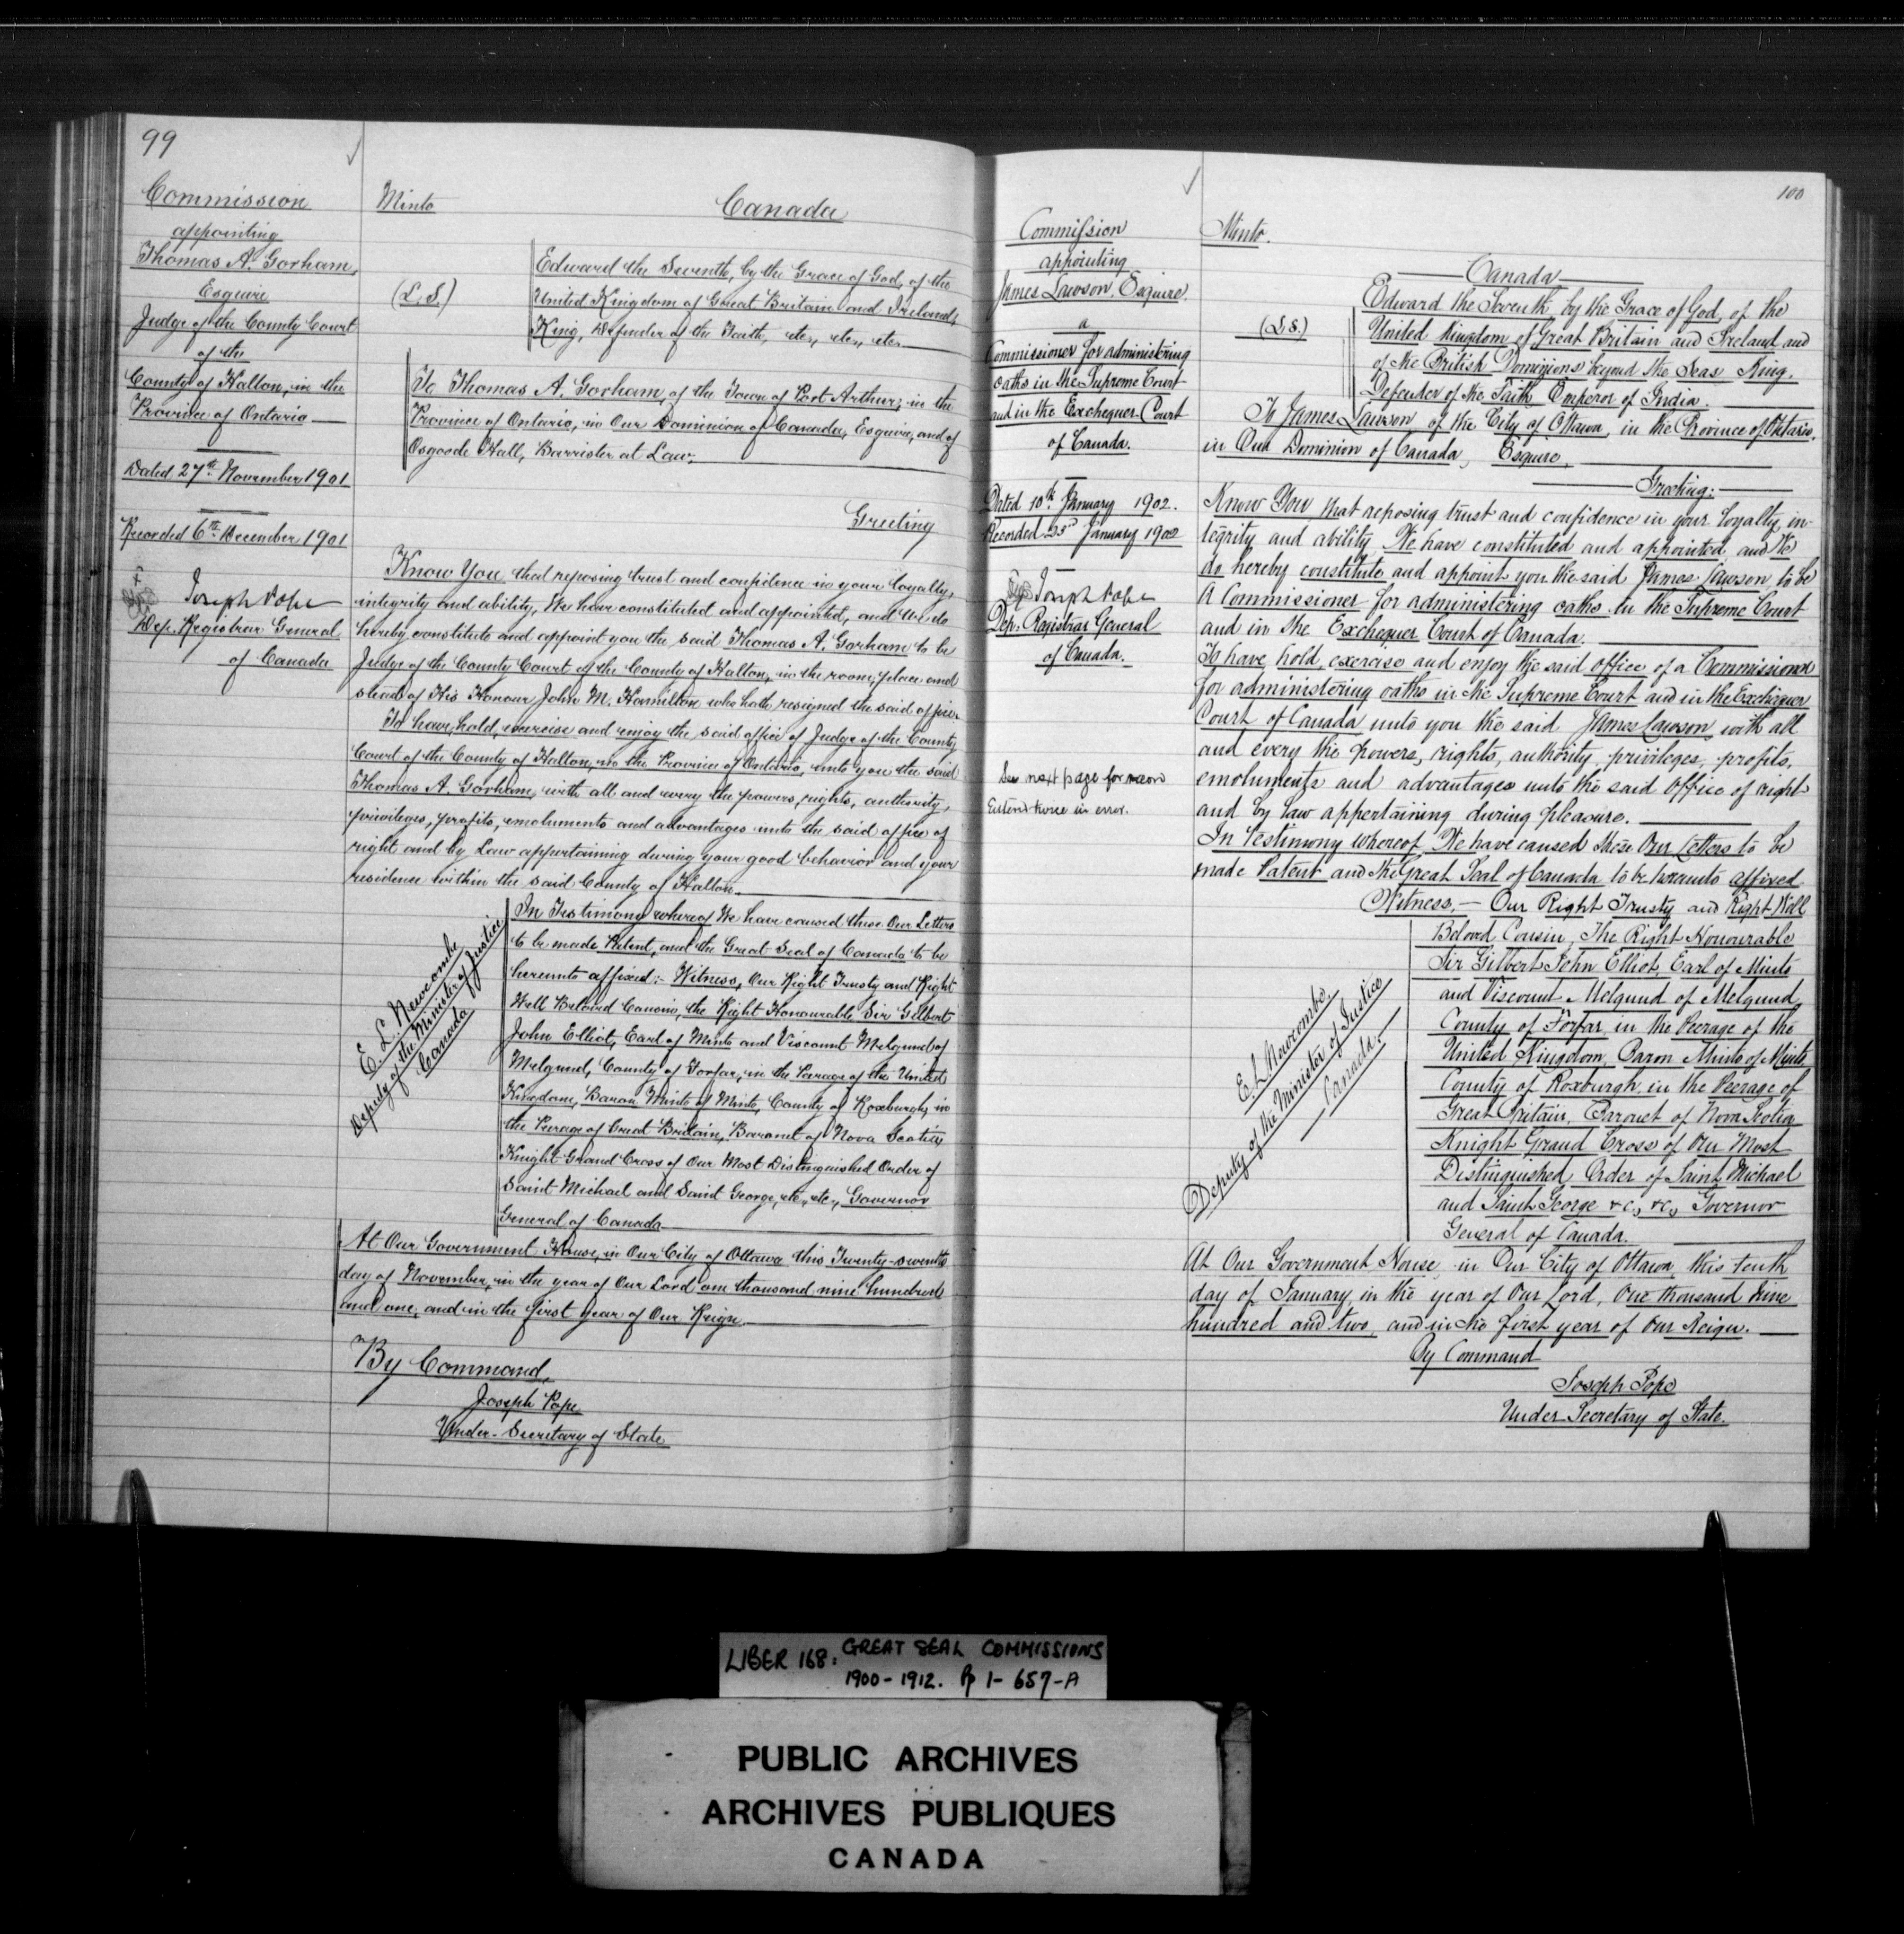 99
Commission
appointing
Thomas A. Gorham,
Esquire
Judge of the County Court
of the
County of Halton, in the
Province of Ontario
Dated 27th November 1901
Recorded 6th December 1901
Joseph Pope
Dep. Registrar General
of Canada
Minto
Canada
(L.S.)
Edward the Seventh, by the Grace of God, of the
United Kingdom of Great Britain and Ireland,
King, Defender of the Faith, etc., etc., etc.
To Thomas A. Gorham, of the Town of Port Arthur, in the
Province of Ontario, in Our Dominion of Canada, Esquire, and of
Osgoode Hall, Barrister at Law.
Greeting
Know You, that reposing trust and confidence in your loyalty,
integrity and ability, We have constituted and appointed, and We do
hereby constitute and appoint you the said Thomas A. Gorham to be
Judge of the County Court of the County of Halton, in the room, place and
stead of His Honour John M. Hamilton who hath resigned the said office.
To have, hold, exercise and enjoy the said office of Judge of the County
Court of the County of Halton, in the Province of Ontario, unto you the said
Thomas A. Gorham, with all and every the powers, rights, authority,
privileges, profits, emoluments and advantages unto the said office of
right and by Law appertaining during your good behavior and your
residence within the said County of Halton.
E. L. Newcombe
Deputy of the Minister of Justice
Canada
In Testimony whereof We have caused these Our Letters
to be made Patent, and the Great Seal of Canada to be
hereunto affixed:- Witness, Our Right Trusty and Right
Well Beloved Cousin, the Right Honourable Sir Gilbert
John Elliot, Earl of Minto and Viscount Melgund of
Melgund, County of Forfar, in the Peerage of the United
Kingdom, Baron Minto of Minto, County of Roxburgh, in
the Peerage of Great Britain, Baronet of Nova Scotia,
Knight Grand Cross of Our Most Distinguished Order of
Saint Michael and Saint George, etc., etc., Governor
General of Canada
At Our Government House, in Our City of Ottawa this Twenty-seventh
day of November, in the year of Our Lord one thousand nine hundred
and one, and in the first year of Our Reign.
By Command,
Joseph Pope
Under-Secretary of State
100
Commission
appointing
James Lawson, Esquire.
a
Commissioner for administering
oaths in the Supreme Court
and in the Exchequer Court
of Canada.
Dated 10th January 1902.
Recorded 23rd January 1902
Joseph Pope
Dep. Registrar General
of Canada.
See next page for record
Entered twice in error.
Minto.
Canada
(L.S.)
Edward the Seventh by the Grace of God, of the
United Kingdom of Great Britain and Ireland and
of the British Dominions beyond the Seas King.
Defender of the Faith Emperor of India.
To James Lawson of the City of Ottawa, in the Province of Ontario,
in Our Dominion of Canada, Esquire,
Greeting:
Know You that reposing trust and confidence in your loyalty, in-
tegrity and ability, We have constituted and appointed and We
do hereby constitute and appoint you the said James Lawson to be
A Commissioner for administering oaths in the Supreme Court
and in the Exchequer Court of Canada.
To have hold, exercise and enjoy the said office of a Commissioner
for administering oaths in the Supreme Court and in the Exchequer
Court of Canada unto you the said James Lawson with all
and every the powers, rights, authority, privileges, profits,
emoluments and advantages unto the said Office of right
and by law appertaining during pleasure.
In Testimony Whereof, We have caused these Our Letters to be
made Patent and the Great Seal of Canada to be hereunto affixed
E. L. Newcombe
Deputy of the Minister of Justice
Canada.
Witness, — Our Right Trusty and Right Well
Beloved Cousin, The Right Honourable
Sir Gilbert John Elliot, Earl of Minto
and Viscount Melgund of Melgund,
County of Forfar, in the Peerage of the
United Kingdom, Baron Minto of Minto
County of Roxburgh, in the Peerage of
Great Britain, Baronet of Nova Scotia
Knight Grand Cross of Our Most
Distinguished Order of Saint Michael
and Saint George &c., &c., Governor
General of Canada.
At Our Government House, in Our City of Ottawa, this tenth
day of January, in the year of Our Lord, One thousand nine
hundred and two, and in the first year of Our Reign.
By Command
Joseph Pope
Under Secretary of State.
LIBER 168: GREAT SEAL COMMISSIONS
1900-1912. Pp 1-657-A
PUBLIC ARCHIVES
ARCHIVES PUBLIQUES
CANADA